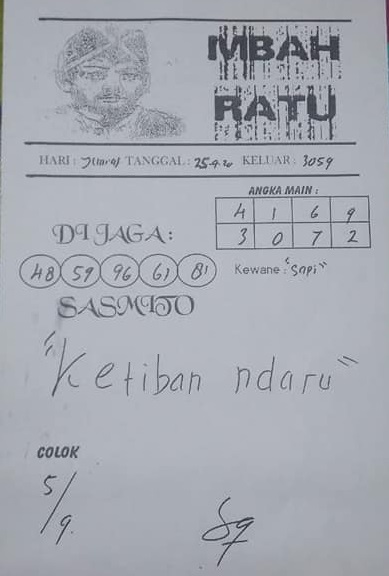 MBAH
RATU
HARI : Jumat TANGGAL : 25-9-20 KELUAR : 3059
ANGKA MAIN :
4 1 6 9
3 0 7 2
DI JAGA :
48 59 96 61 81
Kewane : "Sapi"
SASMITO
"Ketiban ndaru"
COLOK
5/9.